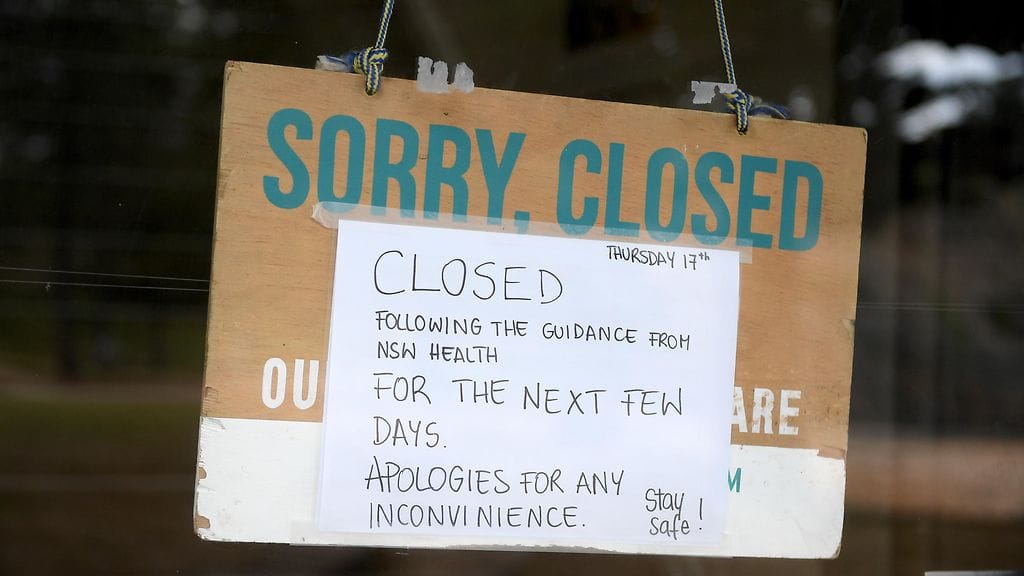 SORRY, CLOSED
THURSDAY 17th
CLOSED
FOLLOWING THE GUIDANCE FROM
NSW HEALTH
FOR THE NEXT FEW
DAYS.
APOLOGIES FOR ANY
INCONVINIENCE.
Stay
safe!
OU
ARE
M